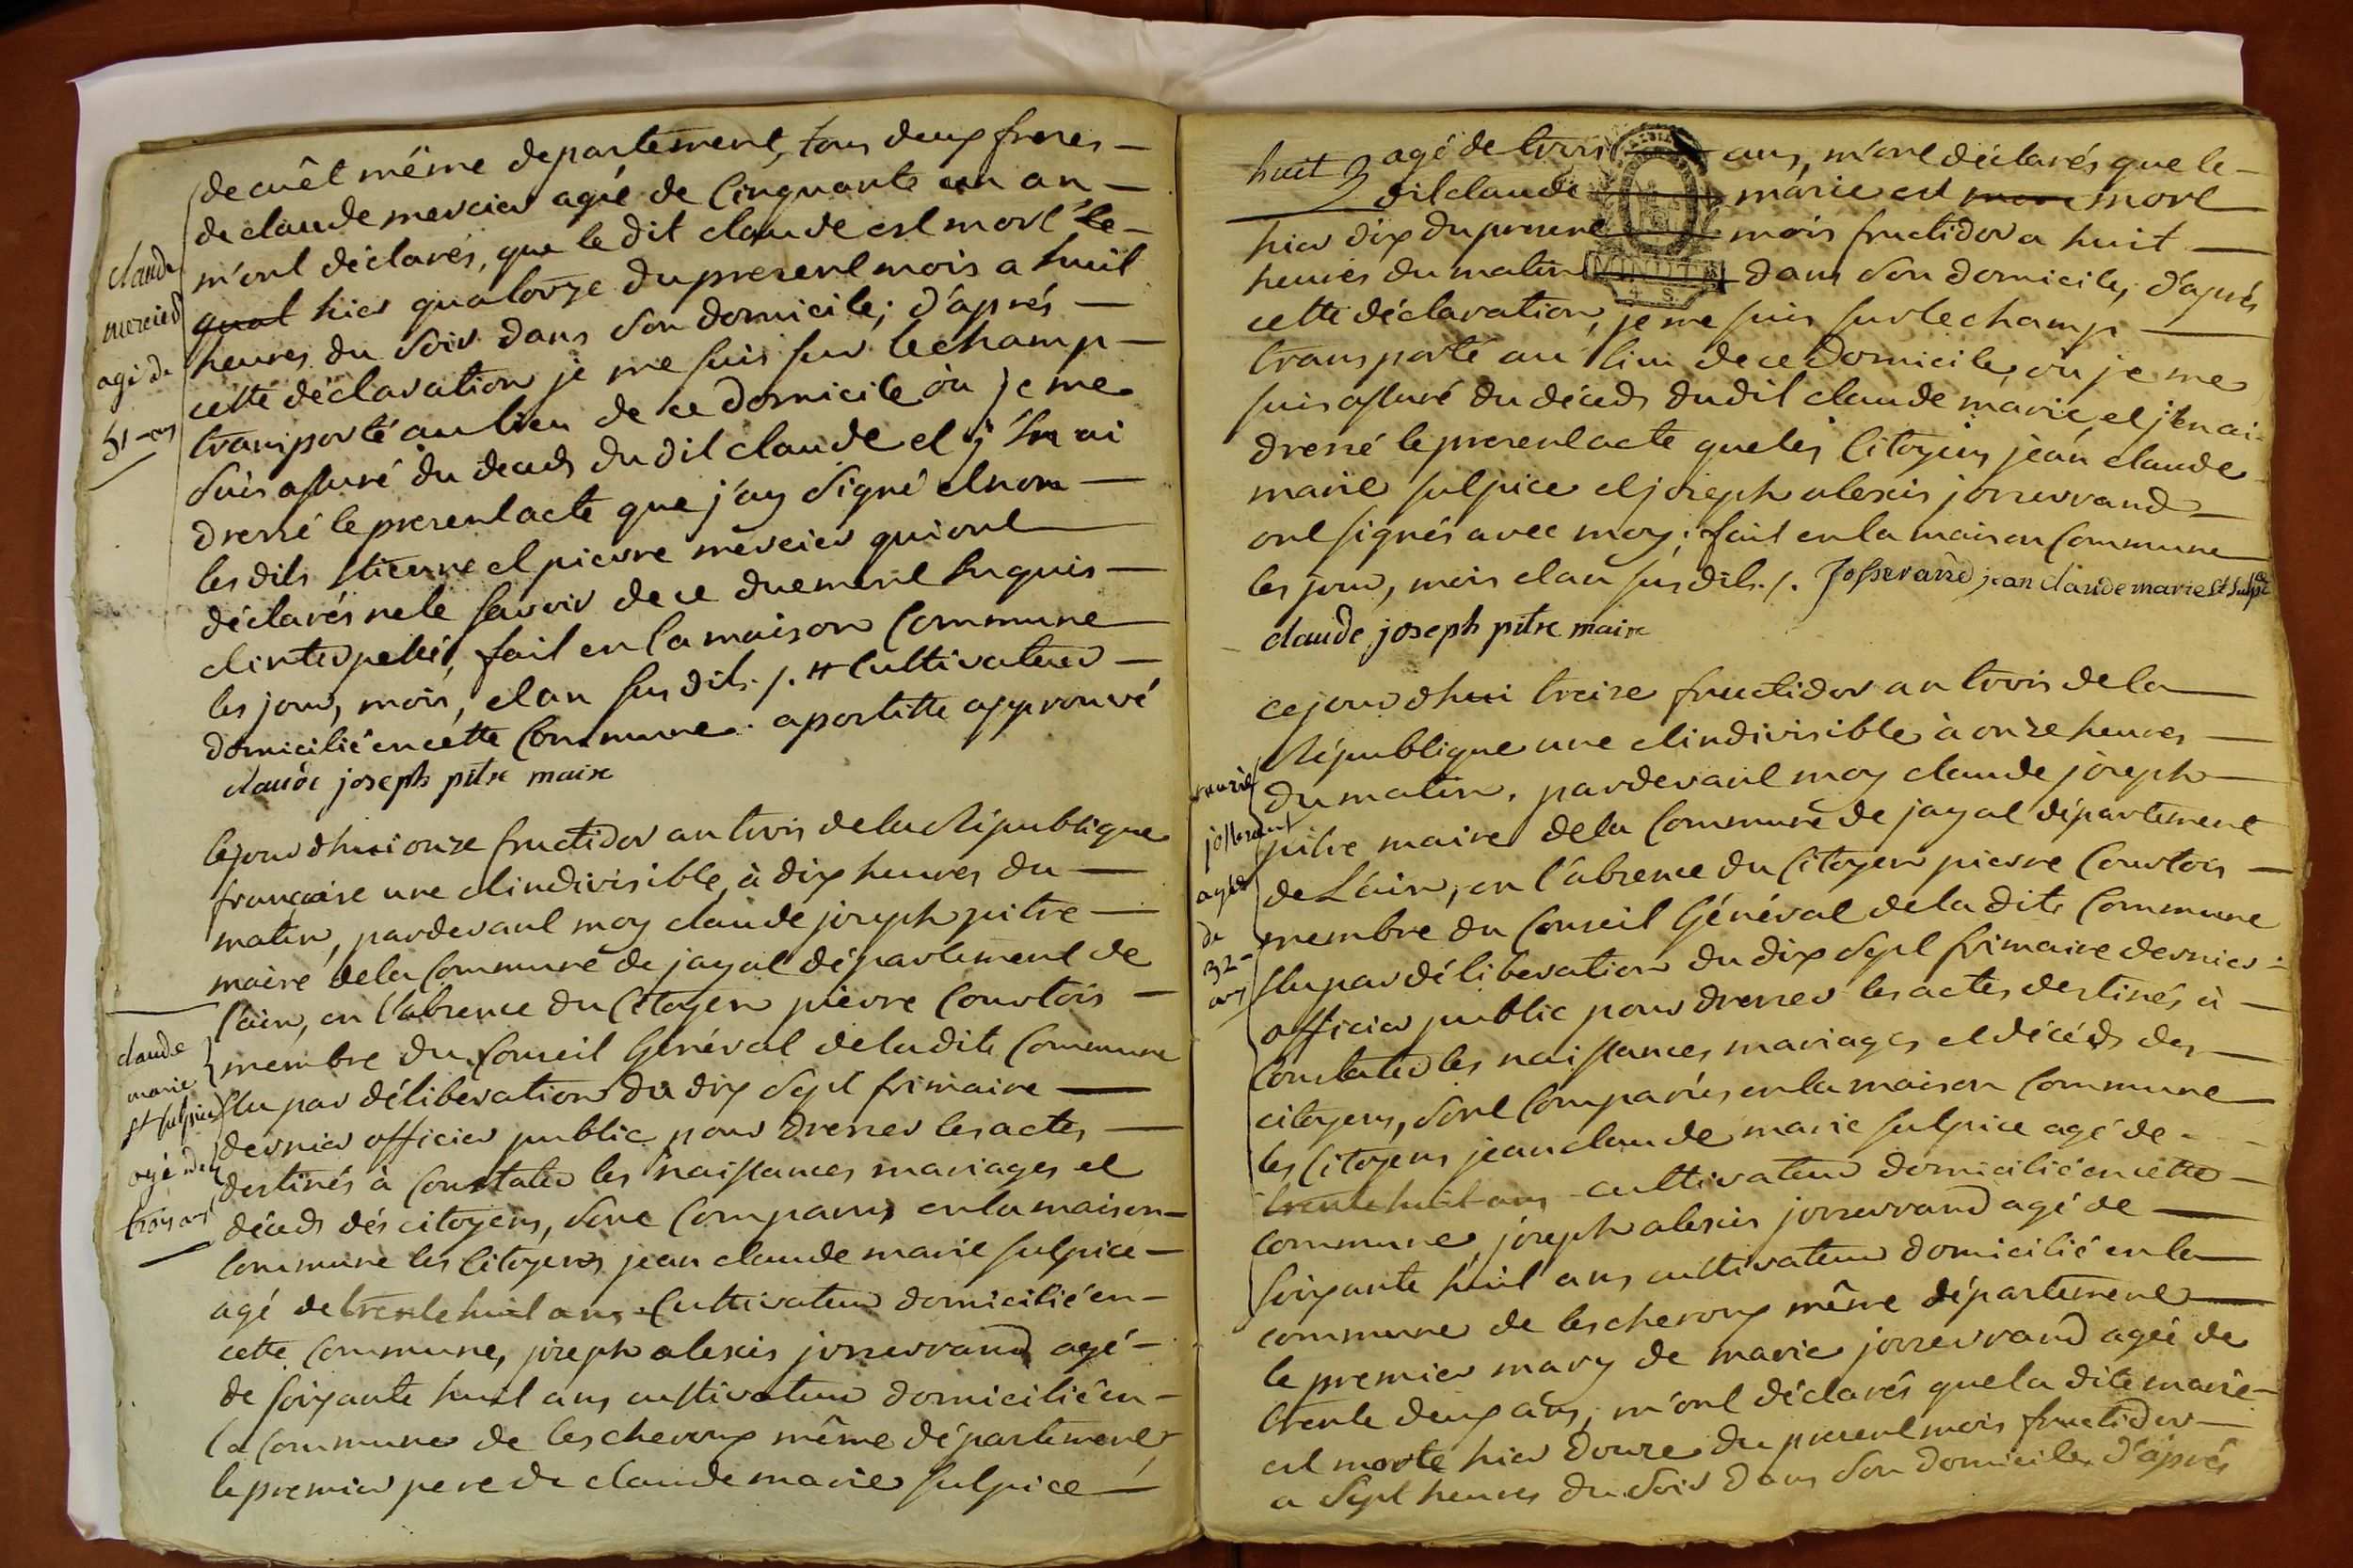 de cuêt même departement, tous deux freres
claude
mercier
agé de
51 ans
de claude mercier agée de Cinquante un an
m'ont déclarés, que le dit claude est mort le
quat hier quatorze du present mois a huit
heures du soir dans son domicile; d'aprés
cette déclaration je me suis sur le champ
transporté au lieu de ce domicile où je me
suis assuré du decads du dit claude et j'En ai
dressé le present acte que j'ay signé et non
les dits Etienne et pierre mercier qui ont
déclarés ne le savoir de ce duement Enquis
et interpellés, fait en la maison Commune
les jour, mois, et an susdits ./. # Cultivateur
domicilié en cette Commune. apostille approuvé
claude joseph pitre maire
Cejourdhui onze fructidor an trois de la République
francaise une et indivisible, à dix heures du
matin, pardevant moy claude joseph pitre
maire de la Commune de jayat département de
l'ain, en l'absence du Citoyen pierre Courtois
claude
marie
st sulpice
agé de
trois ans
membre du Conseil Général de la dite Commune
Elu par délibération du dix sept frimaire
dernier officier public pour dresser les actes
destinés à Constater les naissances mariages et
décads dés citoyens, sont Comparus en la maison
Commune les Citoyens jean claude marie sulpice
agé de trente huit ans Cultivateur domicilié en
cette Commune, joseph alexis josserrand agé
de soixante huit ans cultivateur domicilié en
la Commune de lescheroux même département,
le premier pere de claude marie sulpice
huit 3 agé de trois ans, m'ont déclarés que le
dit claude marie est mort mort
hier dix du present mois fructidor a huit
heures du matin dans son domicile, d'aprés
MINUTE
4 S.
cette déclaration, je me suis sur le champ
transporté au lieu de ce domicile, où je me
suis assuré du décads du dit claude marie, et j'en ai
dressé le present acte que les Citoyens jean claude
marie sulpice et joseph alexis josserrand
ont signés avec moy; fait en la maison Commune
les jour, mois et an susdits ./. Josserand jean claude marie St Sulpice
claude joseph pitre maire
cejourdhui treize fructidor an trois de la
République une et indivisible, à onze heures
marie
josserand
agée
de
32
ans
du matin, pardevant moy claude joseph
pitre maire de la Commune de jayat département
de L'ain, en l'absence du Citoyen pierre Courtois
membre du Conseil Général de la dite Commune
Elu par délibération du dix sept frimaire dernier
officier public pour dresser les actes destinés à
Constater les naissances mariages et décéds des
citoyens, sont Comparus en la maison Commune
les Citoyens jean claude marie sulpice agé de
trente huit ans cultivateur domicilié en cette
Commune, joseph alexis josserrand agé de
soixante huit ans cultivateur domicilié en la
commune de lescheroux même département
le premier mary de marie josserrand agée de
trente deux ans, m'ont déclarés que la dite marie
est morte hier douze du present mois fructidor
a sept heures du soir dans son domicile, d'aprés